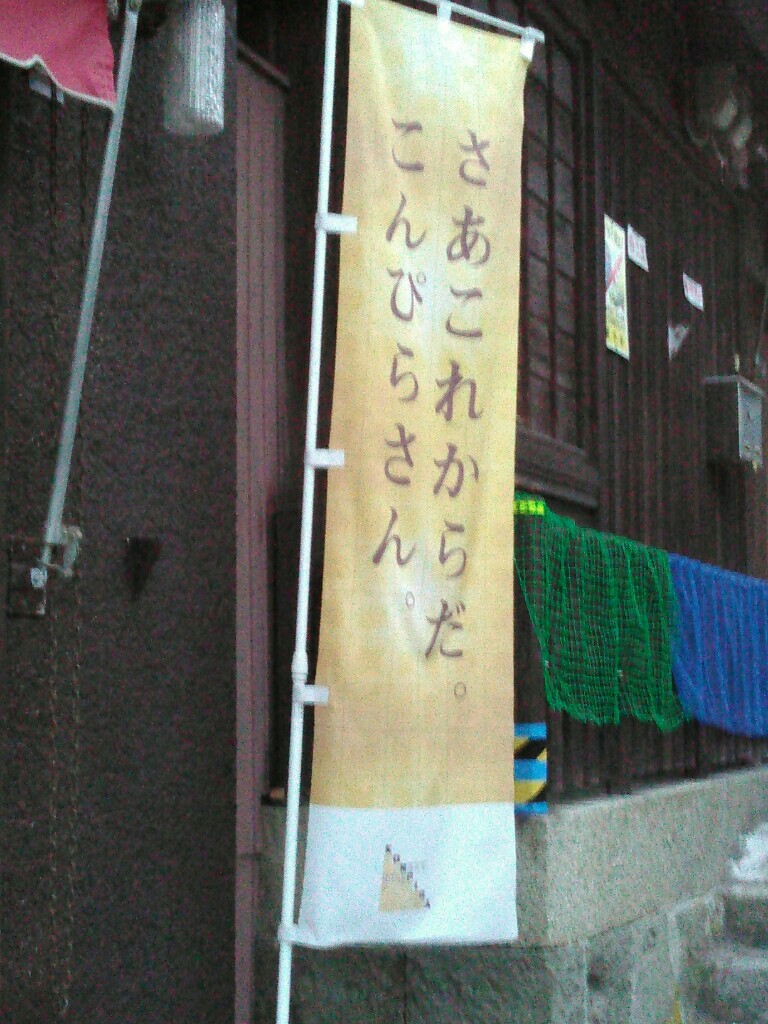 さあこれからだ。
こんぴらさん。